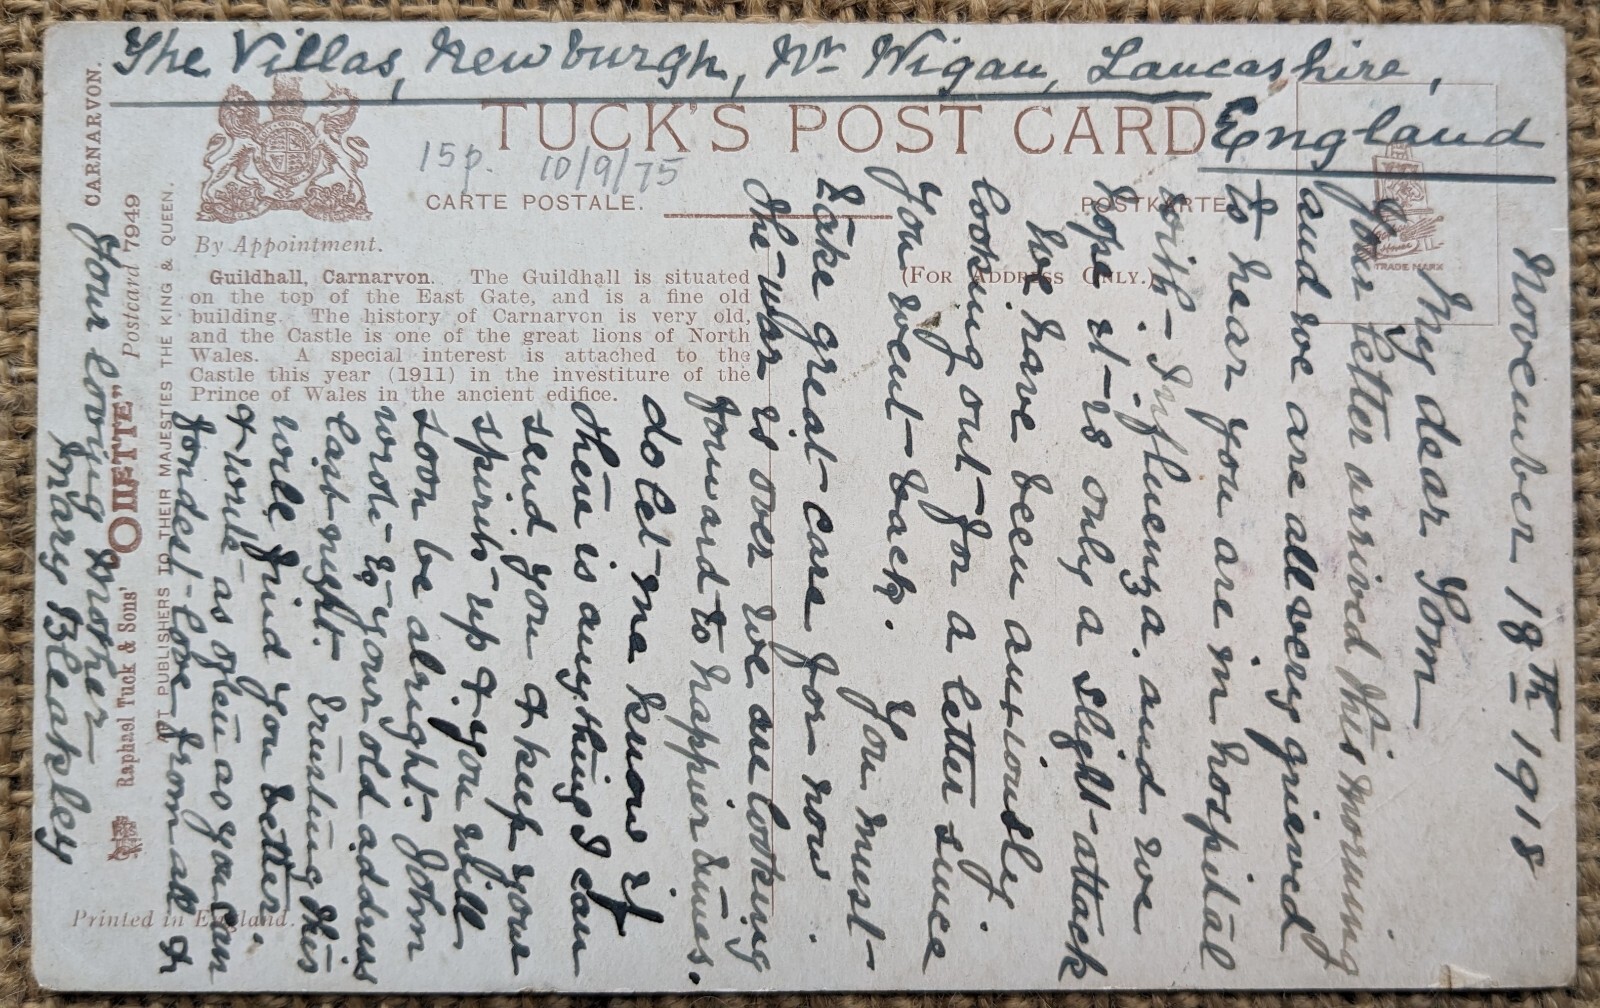 The Villas, Newburgh, Nr Wigan, Lancashire,
England
November 18TH 1918
My dear Tom
Your letter arrived this morning
and we are all very grieved
to hear you are in hospital
with Influenza. and we
hope it is only a slight attack
We have been anxiously
looking out for a letter since
you went back. You must
take great care for now
the war is over we are looking
forward to happier times.
do let me know if
there is anything I can
send you & keep your
spirits up & you will
soon be alright. John
wrote to your old address
last night. Trusting this
will find you better.
& write as often as you can
Fondest love from all &
Your loving Mother
Mary Bleakley
TUCK'S POST CARD
15p. 10/9/75
CARTE POSTALE.
POSTKARTE
By Appointment.
(FOR ADDRESS ONLY.)
TRADE MARK
Guildhall, Carnarvon. The Guildhall is situated
on the top of the East Gate, and is a fine old
building. The history of Carnarvon is very old,
and the Castle is one of the great lions of North
Wales. A special interest is attached to the
Castle this year (1911) in the investiture of the
Prince of Wales in the ancient edifice.
CARNARVON.
Raphael Tuck & Sons' "OILETTE" Postcard 7949
ART PUBLISHERS TO THEIR MAJESTIES THE KING & QUEEN.
Printed in England.